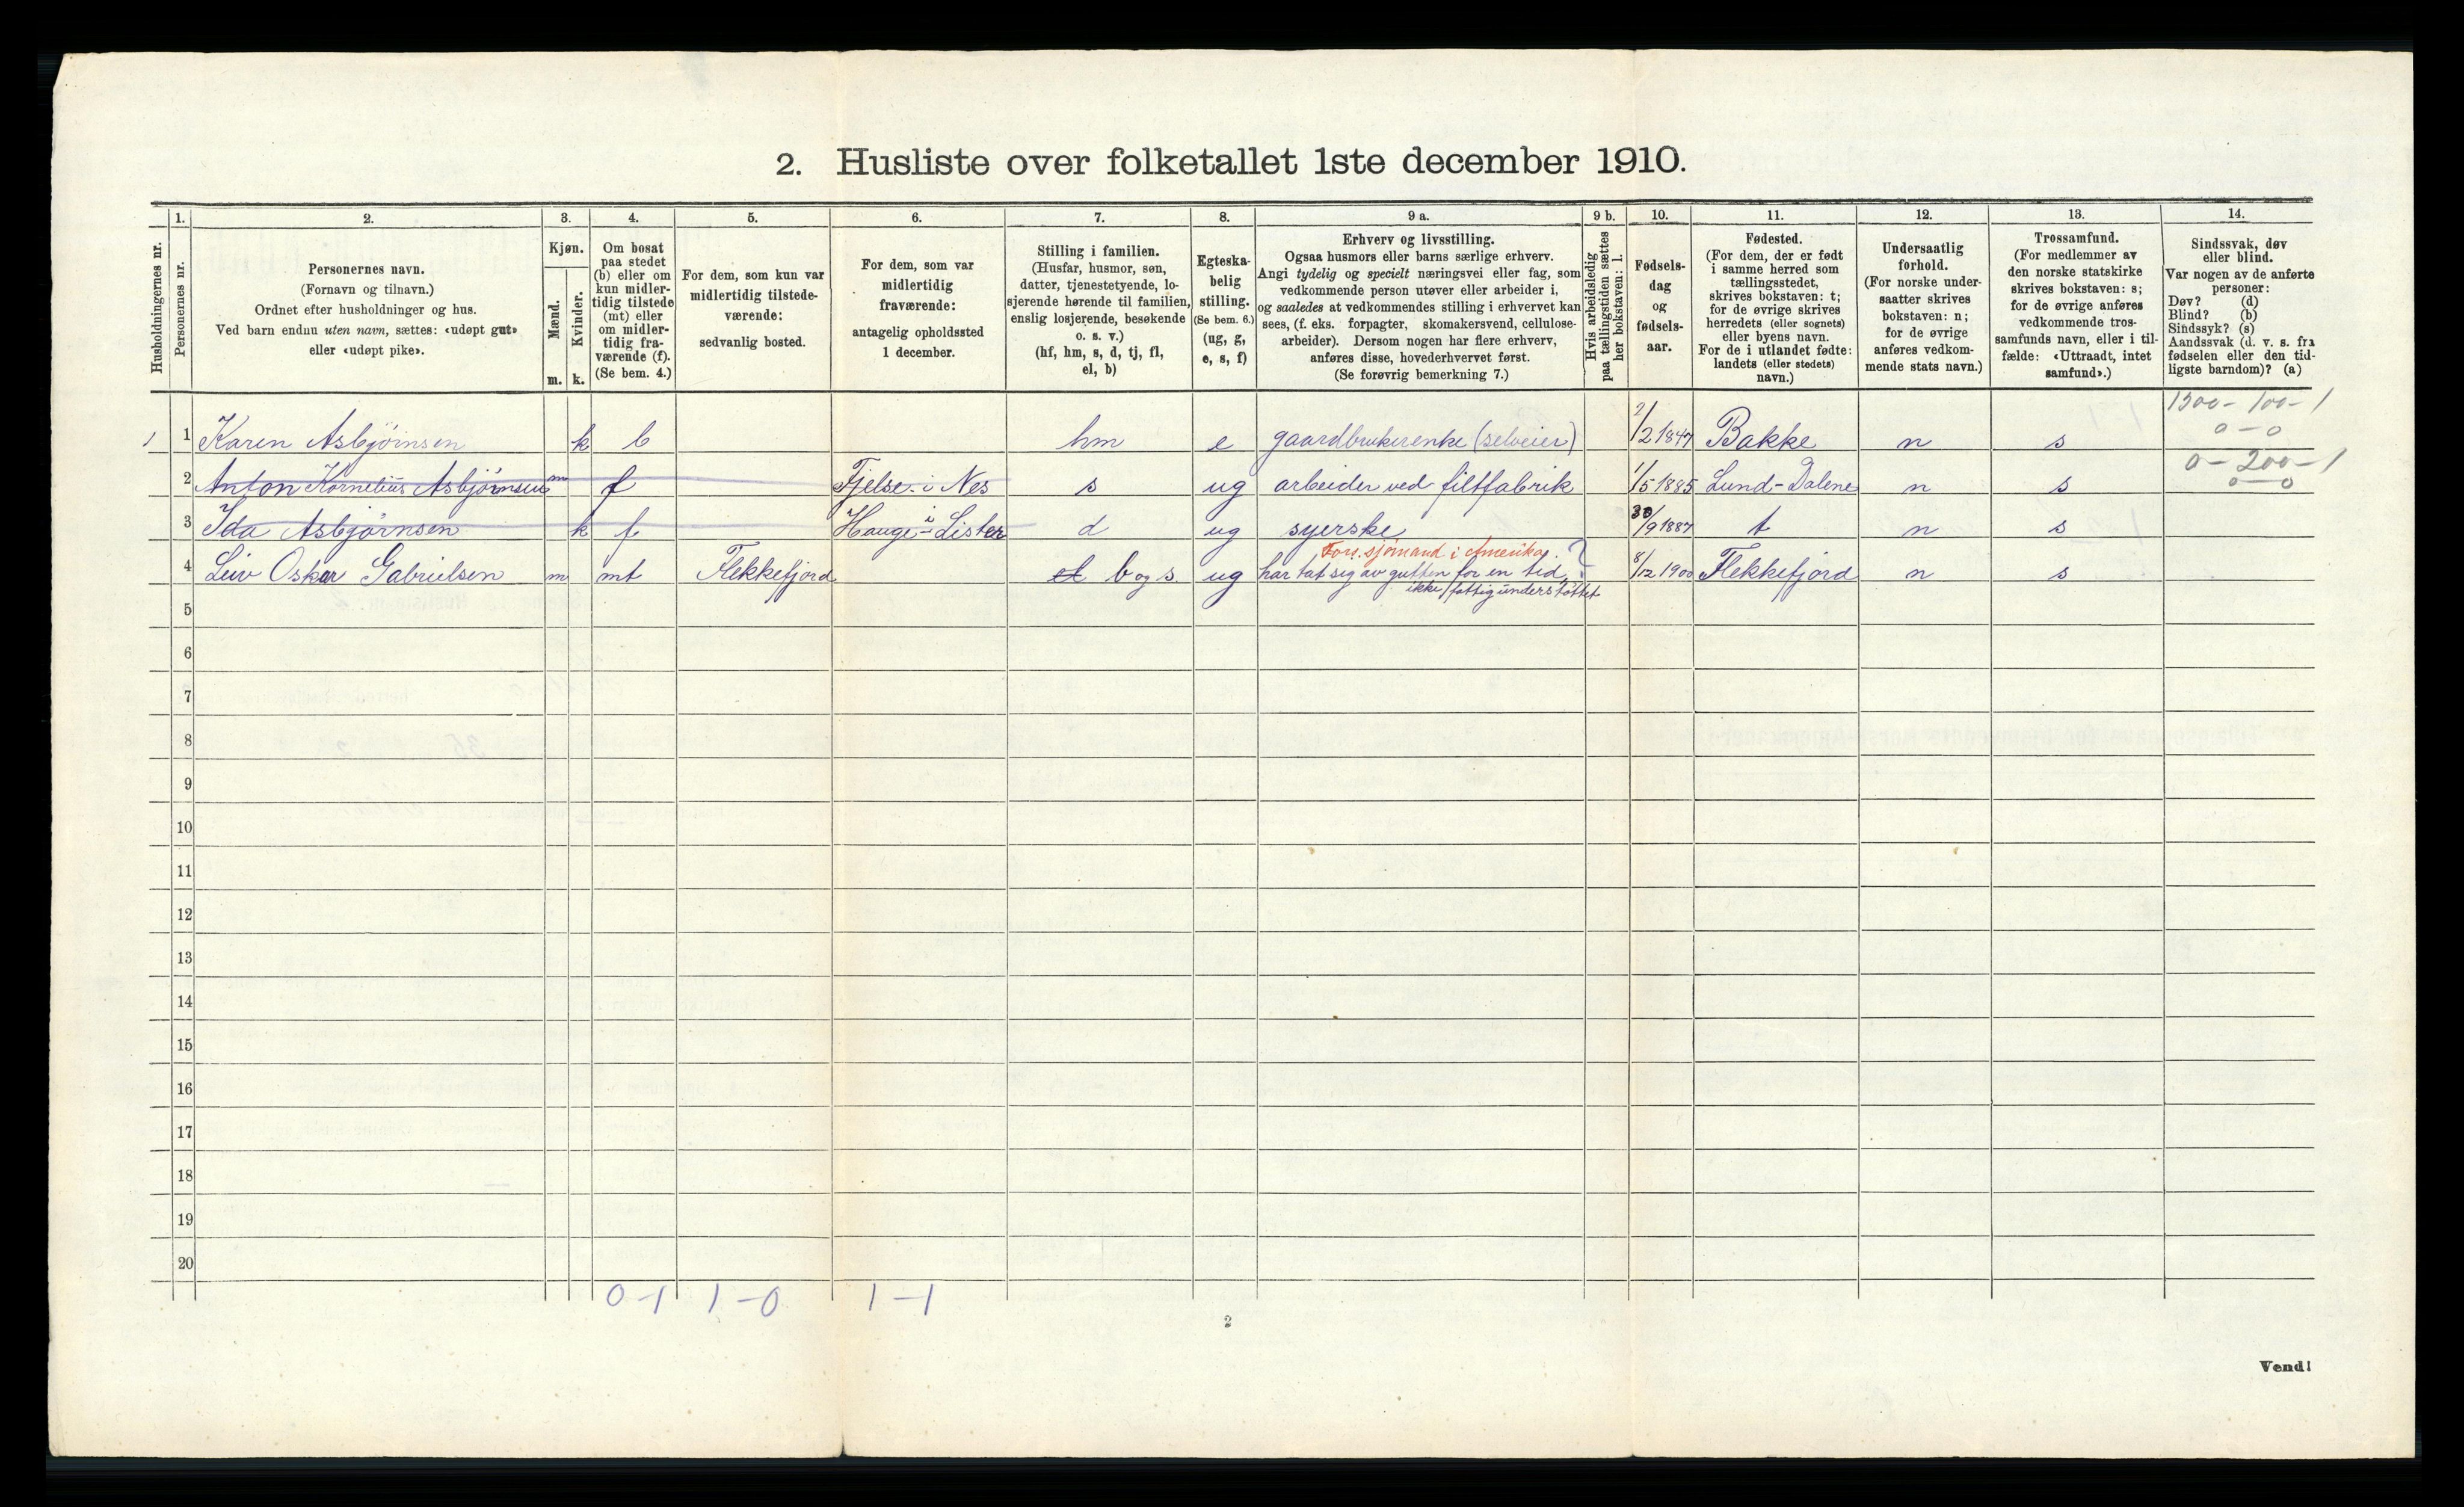 2. Husliste over folketallet 1ste december 1910.
Husholdningernes nr.
1.
Personernes nr.
2.
Personernes navn.
(Fornavn og tilnavn.)
Ordnet efter husholdninger og hus.
Ved barn endnu uten navn, sættes: «udøpt gut»
eller «udøpt pike».
3.
Kjøn.
Mænd.
Kvinder.
m. k.
4.
Om bosat
paa stedet
(b) eller om
kun midler-
tidig tilstede
(mt) eller
om midler-
tidig fra-
værende (f).
(Se bem. 4.)
5.
For dem, som kun var
midlertidig tilstede-
værende:
sedvanlig bosted.
6.
For dem, som var
midlertidig
fraværende:
antagelig opholdssted
1 december.
7.
Stilling i familien.
(Husfar, husmor, søn,
datter, tjenestetyende, lo-
sjerende hørende til familien,
enslig losjerende, besøkende
o. s. v.)
(hf, hm, s, d, tj, fl,
el, b)
8.
Egteska-
belig
stilling.
(Se bem. 6.)
(ug, g,
e, s, f)
9 a.
Erhverv og livsstilling.
Ogsaa husmors eller barns særlige erhverv.
Angi tydelig og specielt næringsvei eller fag, som
vedkommende person utøver eller arbeider i,
og saaledes at vedkommendes stilling i erhvervet kan
sees, (f. eks. forpagter, skomakersvend, cellulose-
arbeider). Dersom nogen har flere erhverv,
anføres disse, hovederhvervet først.
(Se forøvrig bemerkning 7.)
9 b.
Hvis arbeidsledig
paa tællingstiden sættes
her bokstaven: l.
10.
Fødsels-
dag
og
fødsels-
aar.
11.
Fødested.
(For dem, der er født
i samme herred som
tællingsstedet,
skrives bokstaven: t;
for de øvrige skrives
herredets (eller sognets)
eller byens navn.
For de i utlandet fødte:
landets (eller stedets)
navn.)
12.
Undersaatlig
forhold.
(For norske under-
saatter skrives
bokstaven: n;
for de øvrige
anføres vedkom-
mende stats navn.)
13.
Trossamfund.
(For medlemmer av
den norske statskirke
skrives bokstaven: s;
for de øvrige anføres
vedkommende tros-
samfunds navn, eller i til-
fælde: «Uttraadt, intet
samfund».)
14.
Sindssvak, døv
eller blind.
Var nogen av de anførte
personer:
Døv? (d)
Blind? (b)
Sindssyk? (s)
Aandssvak (d. v. s. fra
fødselen eller den tid-
ligste barndom)? (a)
1500 - 100 - 1
0 - 0
1 1 Karen Asbjørnsen k b hm e gaardbrukerenke (selveier) 2/2 1847 Bakke n s
0 - 200 - 1
0 - 0
2 Anton Kornelius Asbjørnsen m f Fjelse i Nes s ug arbeider ved filtfabrik 1/5 1885 Lund-Dalene n s
3 Ida Asbjørnsen k f Hauge i Lister d ug syerske 30/9 1887 t n s
Fors. sjømand i Amerika. ?
4 Leiv Oskar Gabrielsen m mt Flekkefjord el b og s. ug har tat sig av gutten for en tid 8/12 1900 Flekkefjord n s
ikke fattigunderstøttet
5
6
7
8
9
10
11
12
13
14
15
16
17
18
19
20
0 - 1 1 - 0 1 - 1
2
Vend!